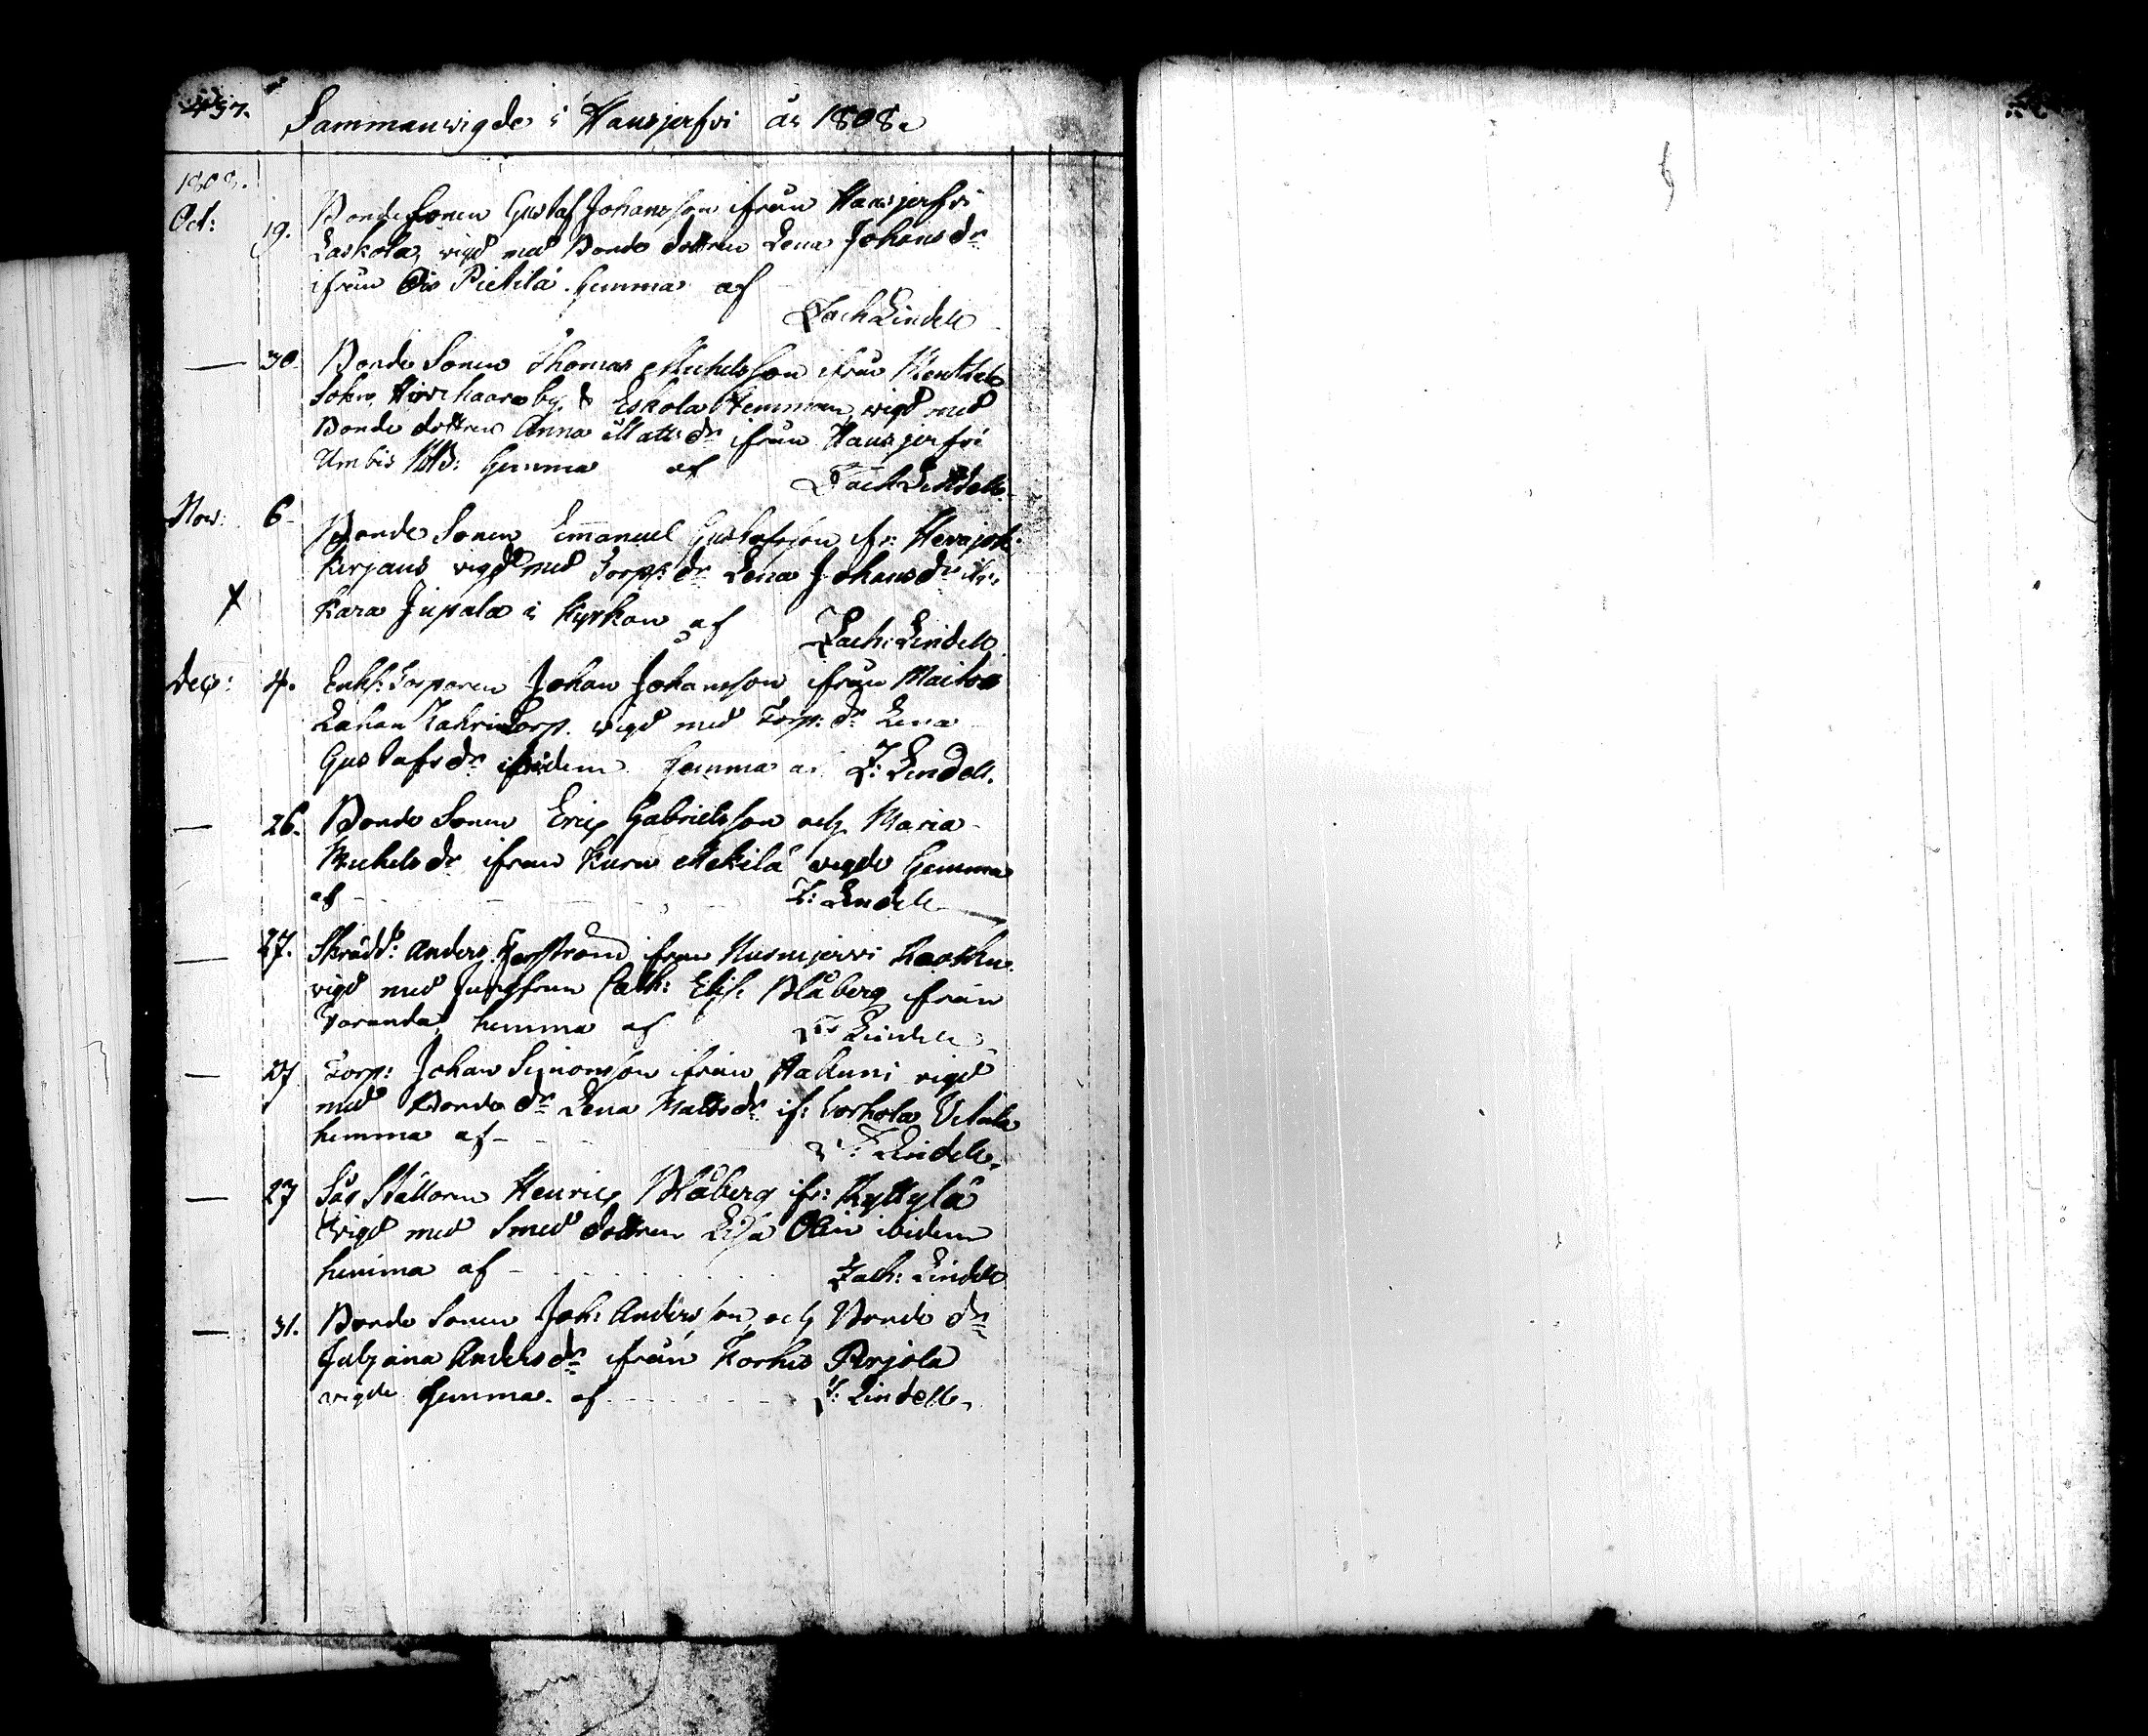 437.
Sammanwigde i Hausjerfvi år 1808.
1808.
Oct: 19. Bonde Sonen Gustaf Johansson ifrån Hausjerfvi
Laskola, wigd med Bonde dottren Lena Johans dr
ifrån Ois Pietilä. hemma af
Zach Lindell
— 30. Bonde Sonen Thomas Michelsson ifrån
Sokn, by. Eskola Hemman, wigd med
Bonde dottren Anna Matts dr ifrån Hausjerfvi
Umbis hemma af
Zach Lindell.
Nov: 6 Bonde Sonen Emanuel Gustafsson ifr:
wigd med Torp: dr Lena Johans dr ifr:
Kara Jupala i Kyrkan af
Zach: Lindell
X
Dec: 4. Enkl: Torparen Johan Johansson ifrån Maitos
Lahan Torp. wigd med Torp: dr Lena
Gustafs dr ibidem hemma af Z: Lindell.
— 26. Bonde Sonen Eric Gabrielsson och Maria
Michels dr ifrån Kuru Mekilä wigde hemma
af Z: Lindell
— 27. Skrädd: Anders ifrån
wigd med Jungfrun Cath: Elis: Blåberg ifrån
hemma af Z: Lindell
— 27 Torp: Johan Simonsson ifrån Hakuni wigd
med Bonde dr Lena Matts dr if:
hemma af Z: Lindell.
— 27 Såg Ställaren Henric Blåberg ifr: Ryttylä
wigd med Smed dottren Lisa Olin ibidem
hemma af Zach: Lindell
— 31. Bonde Sonen Joh: Andersson, och Bonde dr
Juljana Anders dr ifrån Karhis Perjola
wigde hemma af Z: Lindell.